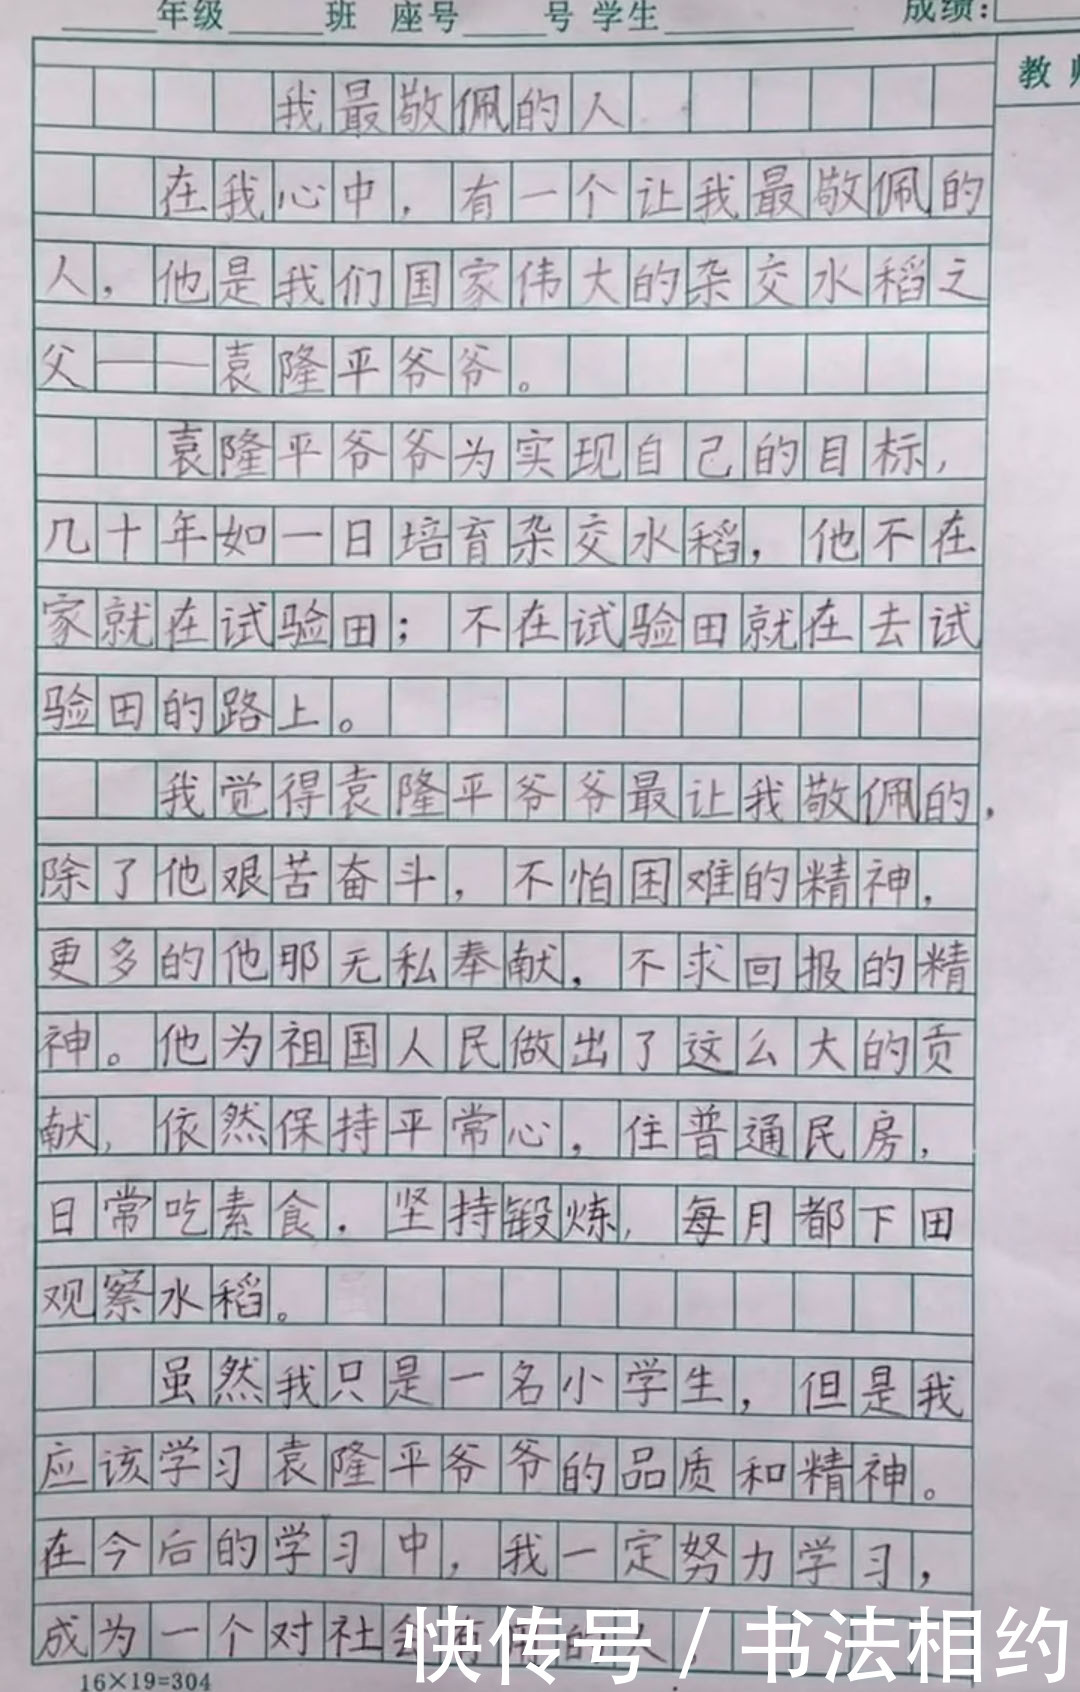 年级 班 座号 号 学生 成绩:
教
我最敬佩的人
在我心中，有一个让我最敬佩的
人，他是我们国家伟大的杂交水稻之
父——袁隆平爷爷。
袁隆平爷爷为实现自己的目标，
几十年如一日培育杂交水稻，他不在
家就在试验田；不在试验田就在去试
验田的路上。
我觉得袁隆平爷爷最让我敬佩的，
除了他艰苦奋斗，不怕困难的精神，
更多的他那无私奉献，不求回报的精
神。他为祖国人民做出了这么大的贡
献，依然保持平常心，住普通民房，
日常吃素食．坚持锻炼，每月都下田
观察水稻。
虽然我只是一名小学生，但是我
应该学习袁隆平爷爷的品质和精神。
在今后的学习中，我一定努力学习，
成为一个对社会
快传号/书法相约
16×19=304